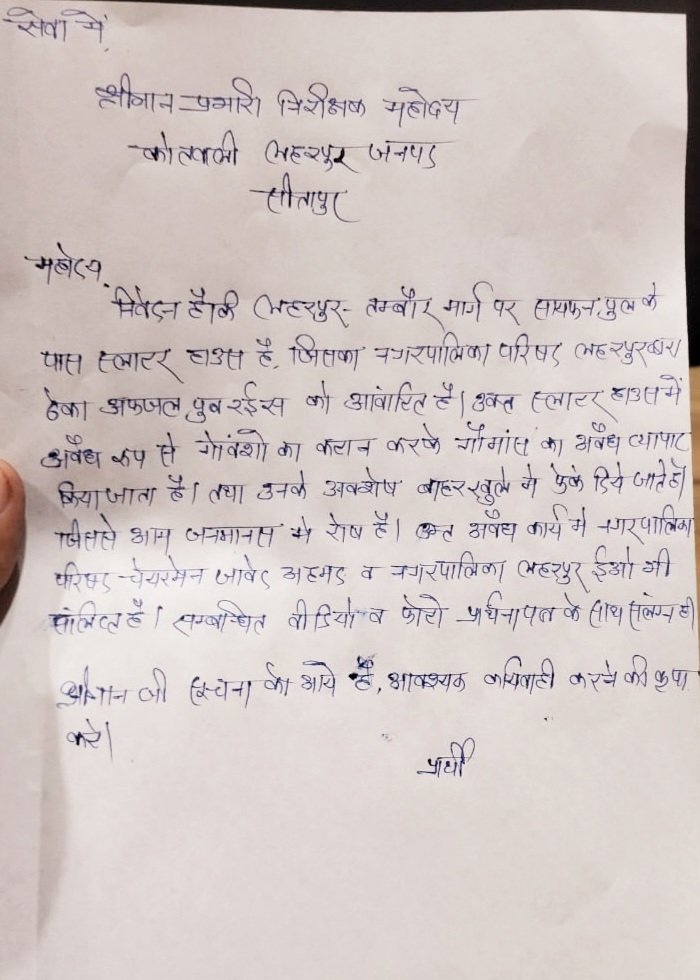 सेवा में,
श्रीमान प्रभारी निरीक्षक महोदय
कोतवाली लहरपुर जनपद
सीतापुर
महोदय,
निवेदन है कि लहरपुर- तम्बौर मार्ग पर सायफन पुल के
पास स्लाटर हाउस है, जिसका नगरपालिका परिषद लहरपुर द्वारा
ठेका अफजल पुत्र रईस को आवंटित है। उक्त स्लाटर हाउस में
अवैध रूप से गोवंशो का कटान करके गौमांस का अवैध व्यापार
किया जाता है। तथा उनके अवशेष बाहर खुले मे फेंक दिये जाते है।
जिससे आम जनमानस मे रोष है। उक्त अवैध कार्य मे नगरपालिका
परिषद चेयरमेन जावेद अहमद व नगरपालिका लहरपुर ईओ भी
संलिप्त है। सम्बन्धित वीडियो व फोटो प्रर्थनापत्र के साथ संलग्न है।
श्रीमान जी सूचना को आये है, आवश्यक कार्यवाही करने की कृपा
करे।
प्रार्थी